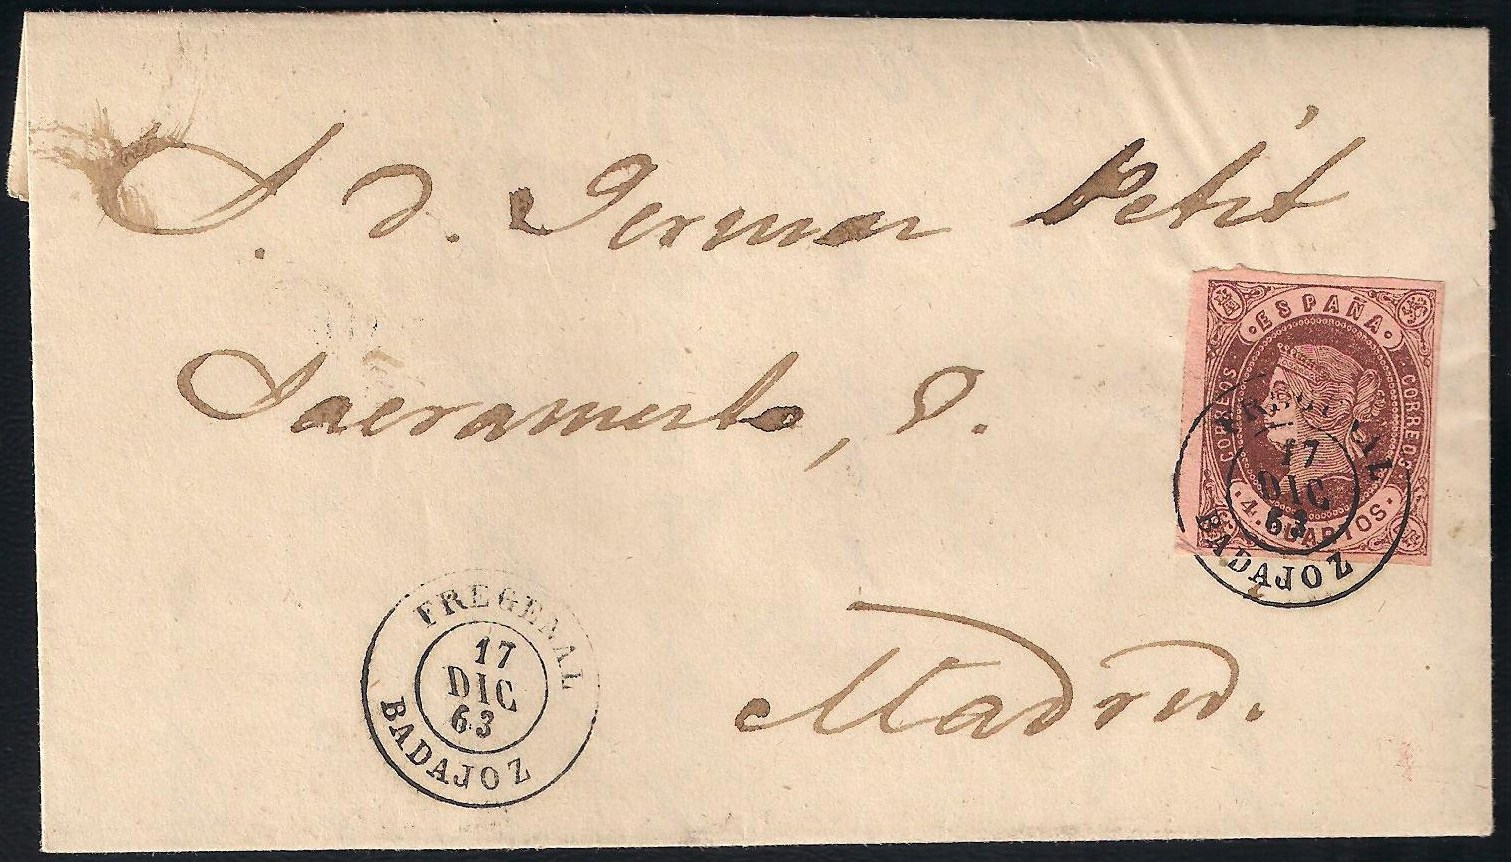 S. d. German Petit
Sacramento,
Madrid.
· ESPAÑA ·
CORREOS
CORREOS
· 4. CUARTOS ·
FREGENAL
17
DIC
63
BADAJOZ
FREGENAL
17
DIC
63
BADAJOZ